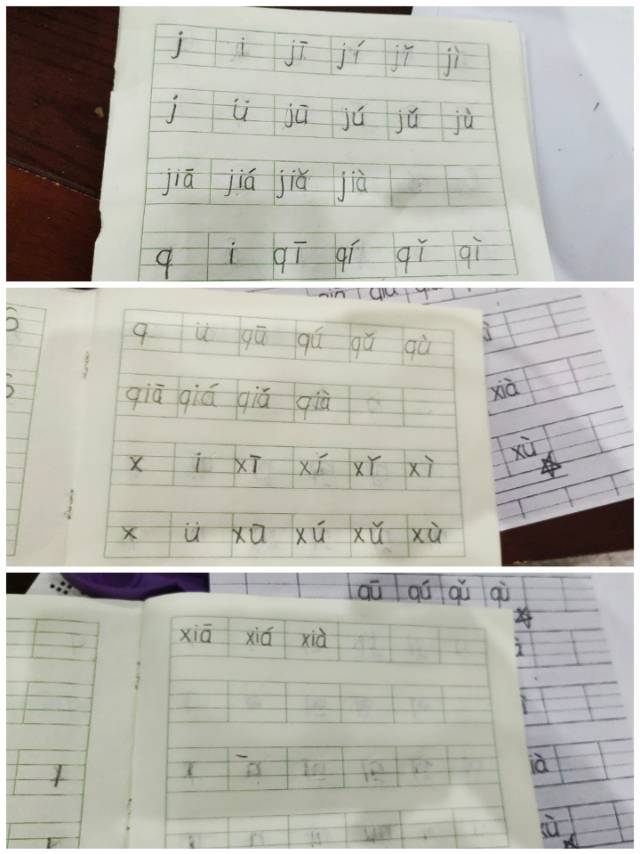 j i jī jí jǐ jì
j ü jū jú jǔ jù
jiā jiá jiǎ jià
q i qī qí qǐ qì
q ü qū qú qǔ qù
qiā qiá qiǎ qià
xià
x i xī xí xǐ xì
xù
x ü xū xú xǔ xù
qū qú qǔ qù
xiā xiá xià
ià
xù